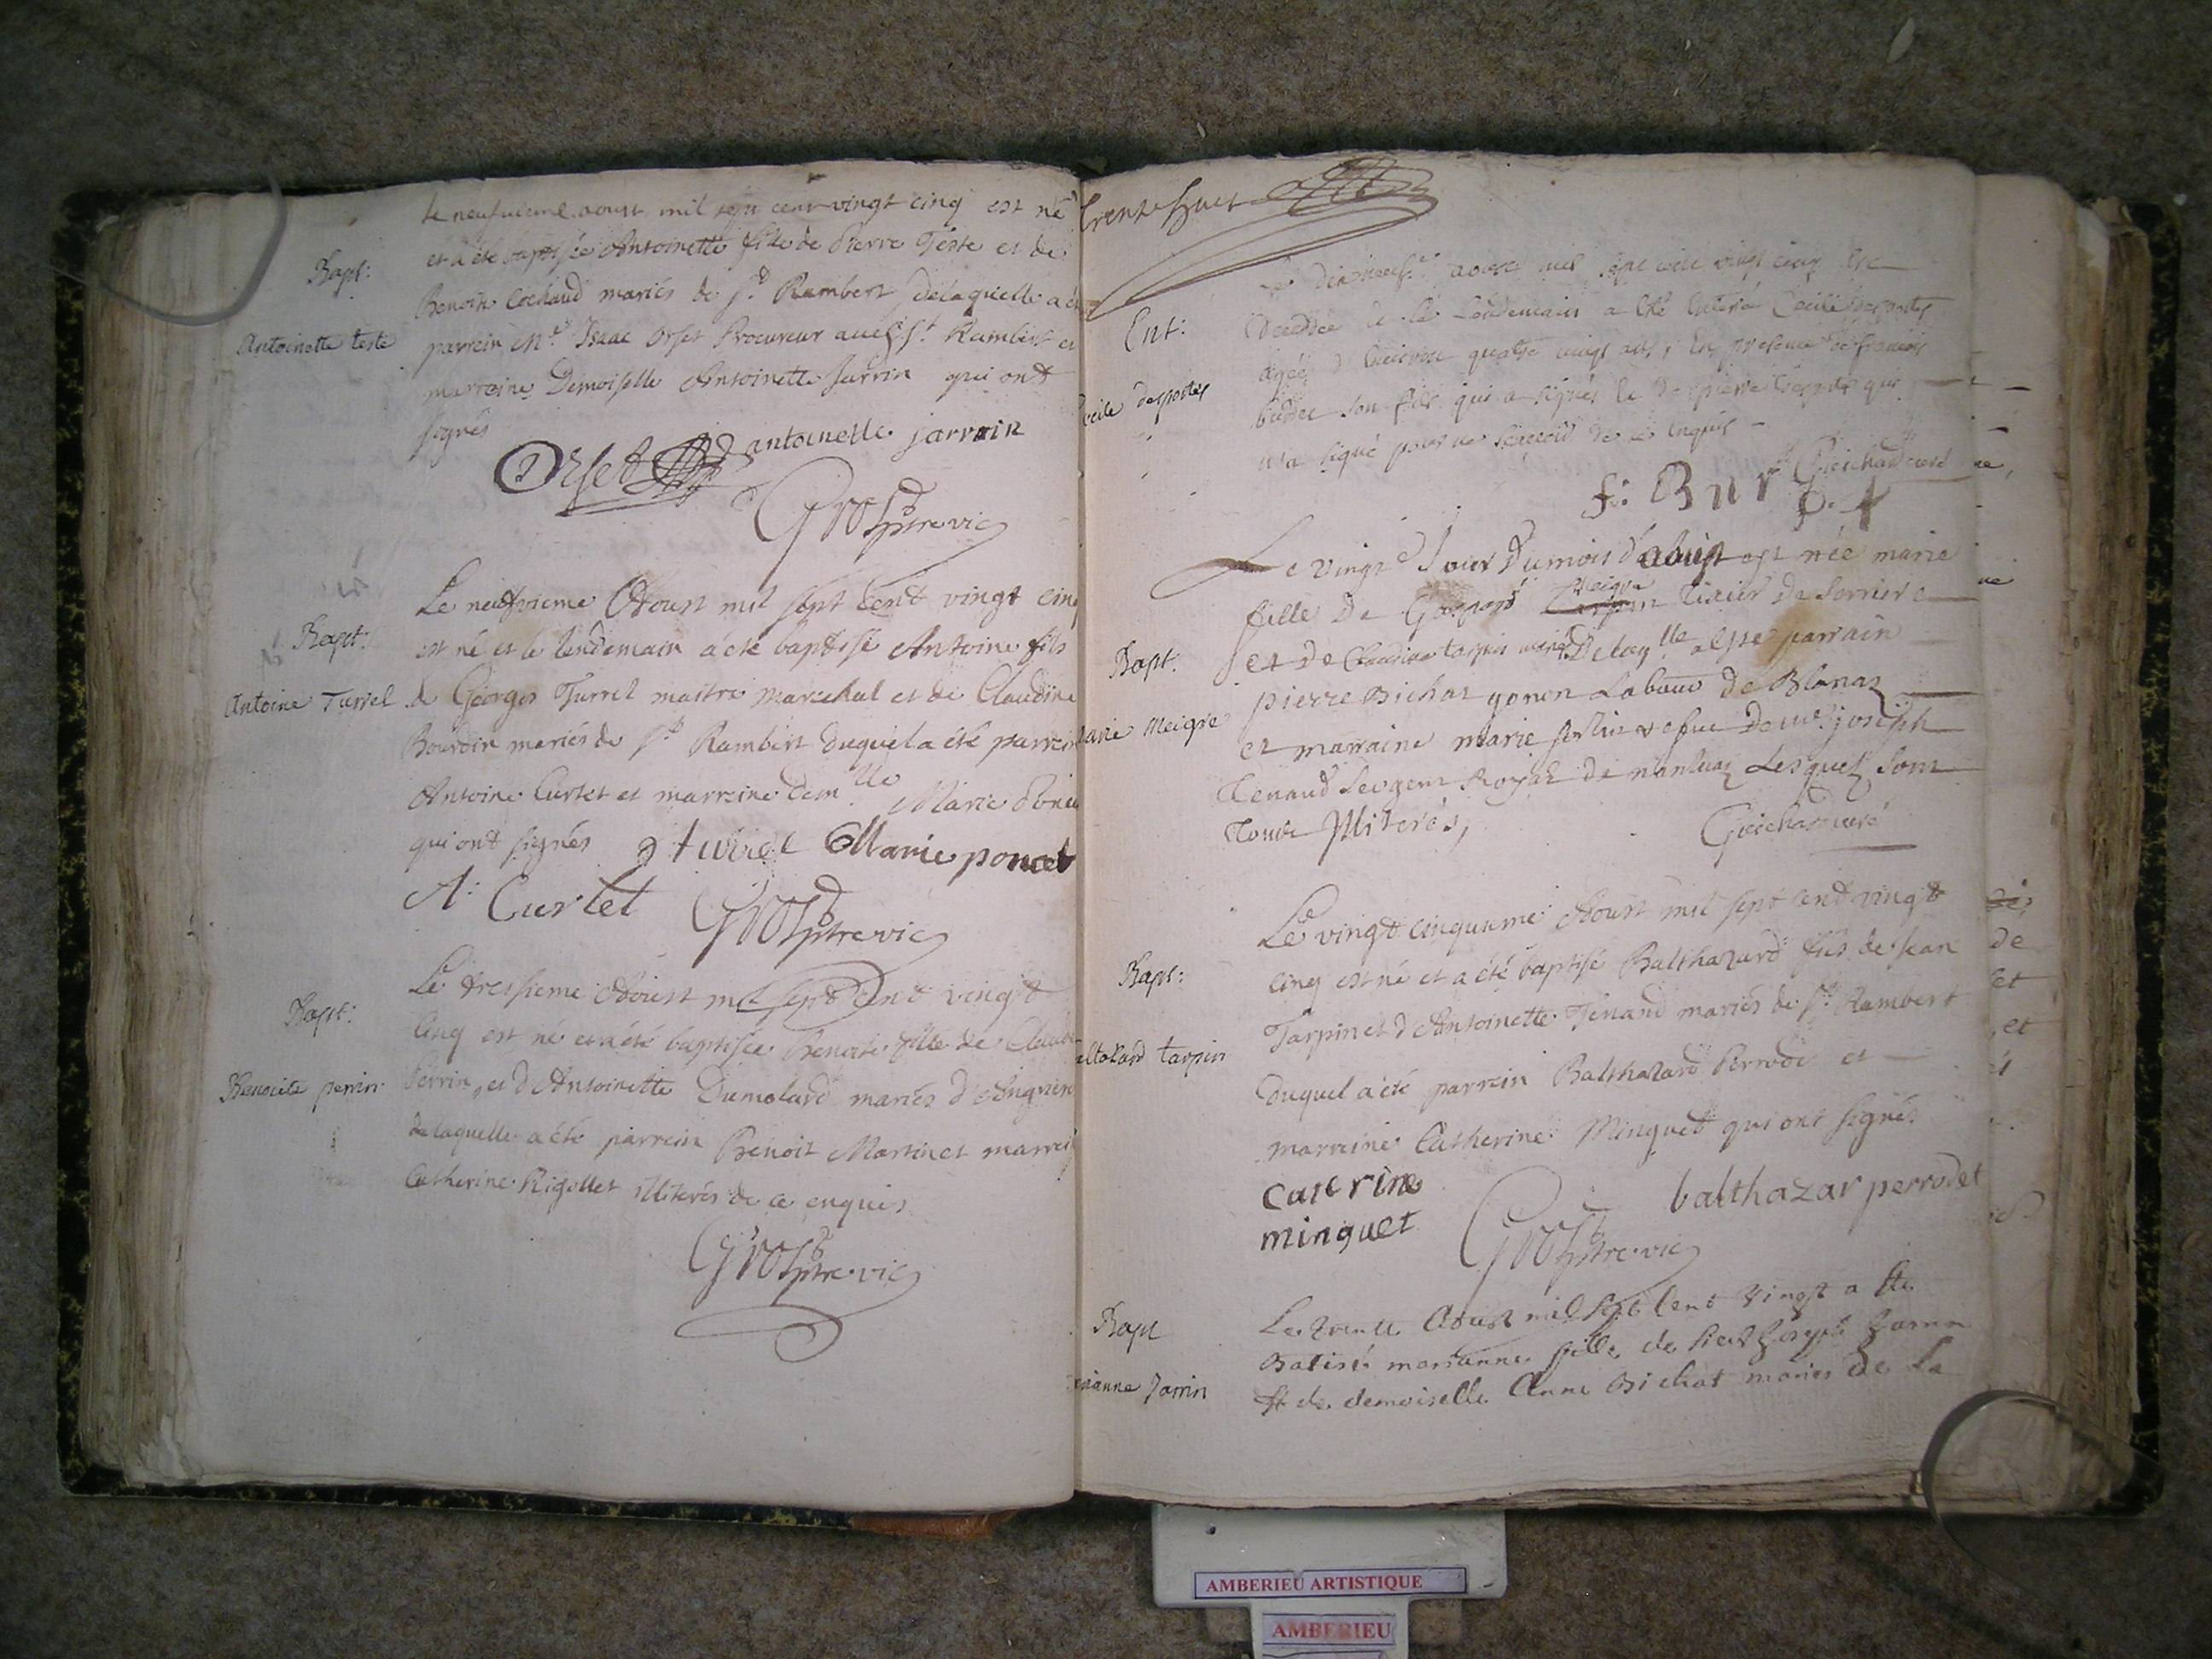 le neufvieme aoust mil sept cent vingt cinq est né
Bapt: et a été baptisée Antoinette fille de Pierre Teste et de
Benoite Cochaud mariés de St Rambert delaquelle a été
Antoinette teste parrein Me Isaac Orset Procureur St Rambert et
marreine Demoiselle Antoinette Jarrin qui ont
signés
Orset antoinette jarrin
Gros ptre vic
Le neufvieme Aoust mil sept cent vingt cinq
Bapt: est né et le lendemain a été baptisé Antoine fils
Antoine Turrel de George Turrel maitre marechal et de Claudine
Bourdin mariés de St Rambert duquel a été parrein
Antoine Curtet et marreine demlle Marie
qui ont signés g turrel Marie poncet
A: Curtet Gros ptre vic
Le tressieme Aoust mil sept cent vingt
Bapt: Cinq est né et a été baptisée Benoite fille de Claude
Benoite perrin Perrin et d'Antoinette Dumolard mariés d'
delaquelle a été parrein Benoit Martin et marrei
Catherine Rigollet illiterés de ce enquis
Gros ptre vic
trente huit
Le dix neufe aoust mil sept cent vingt cinq est
Ent: Decedée et le Lendemain a été Cecile desportes
agée d'environ quatre vingt ans, En presence de francois
Cecile desportes son fils qui a signés et de pierre qui
n'a signé pour ne de ce enquis
f: Bur Guichard curé
Le vingte Jour Du mois d'aoust est née marie
fille De Gaspard Meigre tixier de Serriere
Bapt: et de Claudine tarpin mariés Delaqlle a esté parrain
pierre Bichat gonon Labour de Blanaz
marie Meigre et marraine marie vefue De me joseph
Tenand Sergent Royal de nantuaz Lesquels sont
Tous Illiterés, Guichard curé
Le vingt cinquieme Aoust mil sept cent vingt
Bapt: cinq est né et a été baptisé Balthazard fils de Jean
Tarpin et d'Antoinette Tenand mariés de St Rambert
altazard tarpin duquel a été parrein Balthazard Perrodet et
marreine Catherine Minguet qui ont signés
caterine balthazar perrodet
minguet Gros ptre vic
Bapt Le trente Aoust mil sept cent vingt a ste
Batisé marianne fille de sieur Joseph Jarrin
rianne Jarrin et de demoiselle Anne Bichat mariés de La
de
et
et
AMBERIEU ARTISTIQUE
AMBERIEU